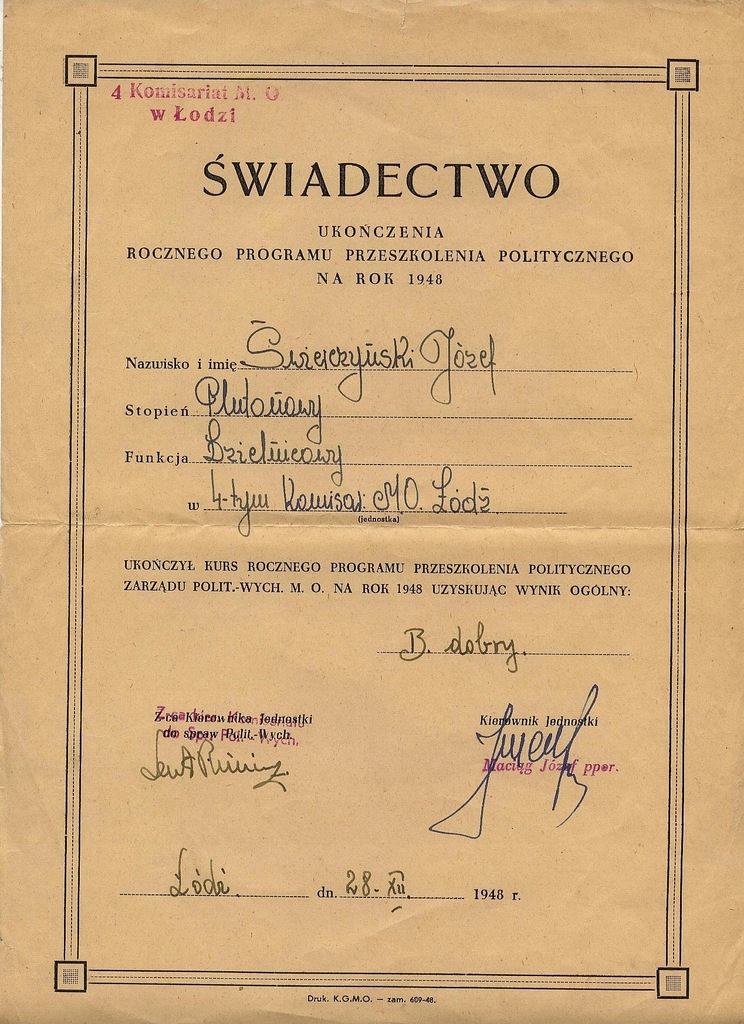 4 Komisariat M. O.
w Łodzi
ŚWIADECTWO
UKOŃCZENIA
ROCZNEGO PROGRAMU PRZESZKOLENIA POLITYCZNEGO
NA ROK 1948
Nazwisko i imię Świerczyński Józef
Stopień Plutonowy
Funkcja Dzielnicowy
w 4-tym Komisar. MO. Łódź
(jednostka)
UKOŃCZYŁ KURS ROCZNEGO PROGRAMU PRZESZKOLENIA POLITYCZNEGO
ZARZĄDU POLIT.-WYCH. M. O. NA ROK 1948 UZYSKUJĄC WYNIK OGÓLNY:
B. dobry.
Z-ca Kierownika Jednostki
do spraw Polit.-Wych.
Kierownik Jednostki
Maciąg Józef ppor.
Łódź. dn. 28-XII. 1948 r.
Druk. K.G.M.O. — zam. 609-48.